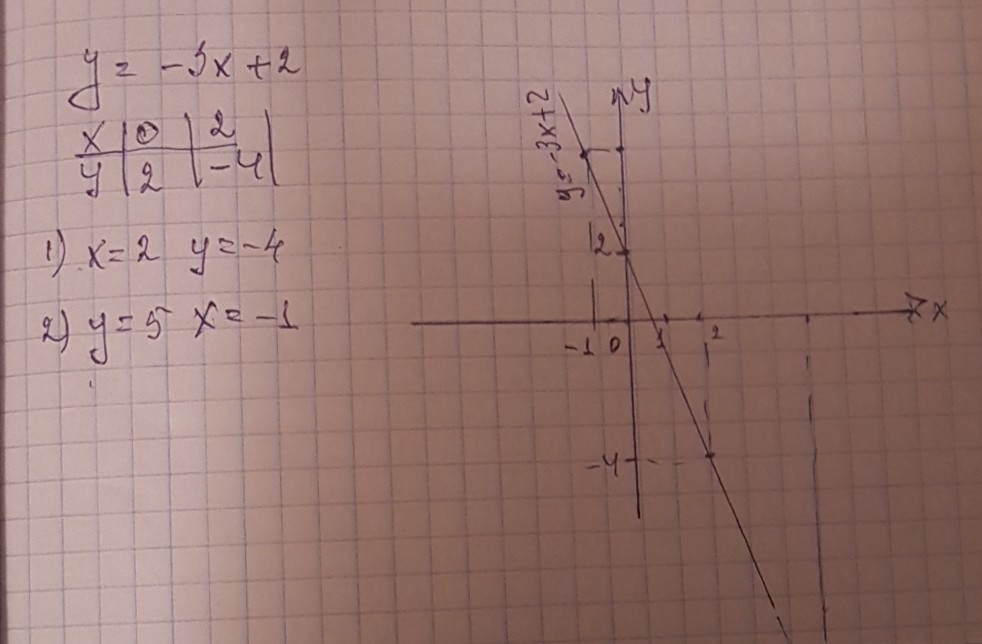 y = -3x + 2
x | 0 | 2
y | 2 | -4
1) x = 2 y = -4
2) y = 5 x = -1
y = -3x+2
y
2
x
-1 0 1 2
-4